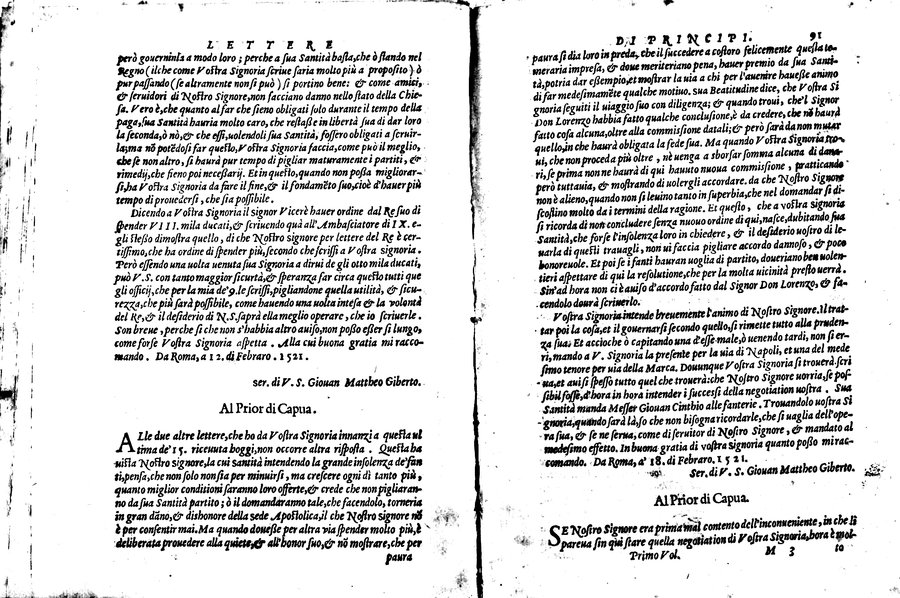 LETTERE
però gouerninsi a modo loro; perche a sua Santità basta, che ò stando nel
Regno (il che come Vostra Signoria scriue saria molto più a proposito) ò
pur passando (se altramente non si può) si portino bene: & come amici,
& seruidori di Nostro Signore, non facciano danno nello stato della Chie-
sa. Vero è, che quanto al far che sieno obligati solo durante il tempo della
paga, sua Santità hauria molto caro, che restasse in libertà sua di dar loro
la seconda, ò nò, & che essi, uolendoli sua Santità, fossero obligati a seruir-
la; ma nō potēdosi far questo, Vostra Signoria faccia, come può il meglio,
che se non altro, si haurà pur tempo di pigliar maturamente i partiti, &
rimedij, che sieno poi necessarij. Et in questo, quando non possa migliorar-
si, ha Vostra Signoria da fare il fine, & il fondamēto suo, cioè d'hauer più
tempo di prouedersi, che sia possibile.
Dicendo a Vostra Signoria il signor Vicerè hauer ordine dal Re suo di
spender VIII. mila ducati, & scriuendo quà all'Ambasciator di IX. e-
gli stesso dimostra quello, di che Nostro signore per lettere del Re è cer-
tissimo, che ha ordine di spender più, secondo che scrissi a Vostra signoria.
Però essendo una uolta uenuta sua Signoria a dirui de gli otto mila ducati,
può V. S. con tanto maggior sicurtà, & speranza far circa questo tutti que
gli officij, che per la mia de'9. le scrissi, pigliandone quella utilità, & sicu-
rezza, che più sarà possibile, come hauendo una uolta intesa & la volontà
del Re, & il desiderio di N.S. saprà ella meglio operare, che io scriuerle.
Son breue, perche si che non s'habbia altro auiso, non posso esser sì lungo,
come forse Vostra Signoria aspetta. Alla cui buona gratia mi racco-
mando. Da Roma, a 12. di Febraro. 1521.
ser. di V. S. Giouan Mattheo Giberto.
Al Prior di Capua.
ALle due altre lettere, che ho da Vostra Signoria innanzi a questa ul
tima de' 15. riceuuta hoggi, non occorre altra risposta. Questa ha
uista Nostro signore, la cui santità intendendo la grande insolenza de' fan
ti, pensa, che non solo non sia per minuirsi, ma crescere ogni dì tanto più,
quanto miglior conditioni saranno loro offerte, & crede che non pigliaran-
no da sua Santità partito; ò il domandaranno tale, che facendolo, torneria
in gran dāno, & dishonore della sede Apostolica, il che Nostro signore nō
è per consentir mai. Ma quando douesse per altra via spender molto più, è
deliberata prouedere alla quiete, & all'honor suo, & nō mostrare, che per
paura
DI PRINCIPI. 91
paura si dia loro in preda, che il succedere a costoro felicemente questa te-
meraria impresa, & doue meriteriano pena, hauer premio da sua Santi-
tà, potria dar essempio, et mostrar la uia a chi per l'auenire hauesse animo
di far medesimamēte qualche motiuo. sua Beatitudine dice, che Vostra Si
gnoria seguiti il uiaggio suo con diligenza; & quando troui, che'l Signor
Don Lorenzo habbia fatto qualche conclusione, è da credere, che nō haurà
fatto cosa alcuna, oltre alla commissione datali; & però sarà da non mutar
quello, in che haurà obligata la fede sua. Ma quando Vostra Signoria tro-
ui, che non proceda più oltre, nè uenga a sborsar somma alcuna di dana-
ri, se prima non ne haurà di qui hauuto nuoua commissione, pratticando
però tuttauia, & mostrando di uolergli accordare. da che Nostro Signore
non è alieno, quando non si leuino tanto in superbia, che nel domandar si di-
scostino molto da i termini della ragione. Et questo, che a vostra signoria
si ricorda di non concludere senza nuouo ordine di qui, nasce, dubitando sua
Santità, che forse l'insolenza loro in chiedere, & il desiderio uostro di le-
uarla di questi trauagli, non ui faccia pigliare accordo dannoso, & poco
honoreuole. Et poi se i fanti hauran uoglia di partito, doueriano ben uolen-
tieri aspettare di qui la resolutione, che per la molta uicinità presto uerrà.
Sin'ad hora non ci è auiso d'accordo fatto dal Signor Don Lorenzo, & fa-
cendolo dourà scriuerlo.
Vostra Signoria intende breuemente l'animo di Nostro Signore. Il trat
tar poi la cosa, et il gouernarsi secondo quello, si rimette tutto alla pruden-
za sua; Et accioche ò capitando una d'esse male, ò uenendo tardi, non si er-
ri, mando a V. Signoria la presente per la uia di Napoli, et una del mede
simo tenore per uia della Marca. Dounque Vostra Signoria si trouerà: scri
ua, et auisi spesso tutto quel che trouerà: che Nostro Signore uorria, se pos-
sibil fosse, d'hora in hora intender i successi della negotiation uostra. Sua
Santità manda Messer Giouan Cinthio alle fanterie. Trouandolo uostra Si
gnoria, quando sarà là, so che non bisogna ricordarle, che si uaglia dell'ope-
ra sua, & se ne serua, come di seruitor di Nostro Signore, & mandato al
medesimo effetto. In buona gratia di vostra signoria quanto posso mi rac-
comando. Da Roma, a' 18. di Febraro. 1521.
Ser. di V. S. Giouan Mattheo Giberto.
Al Prior di Capua.
SE Nostro Signore era prima mal contento dell'inconueniente, in che li
pareua sin qui stare quella negotiation di Vostra Signoria, hora è mol-
Primo Vol. M 3 to